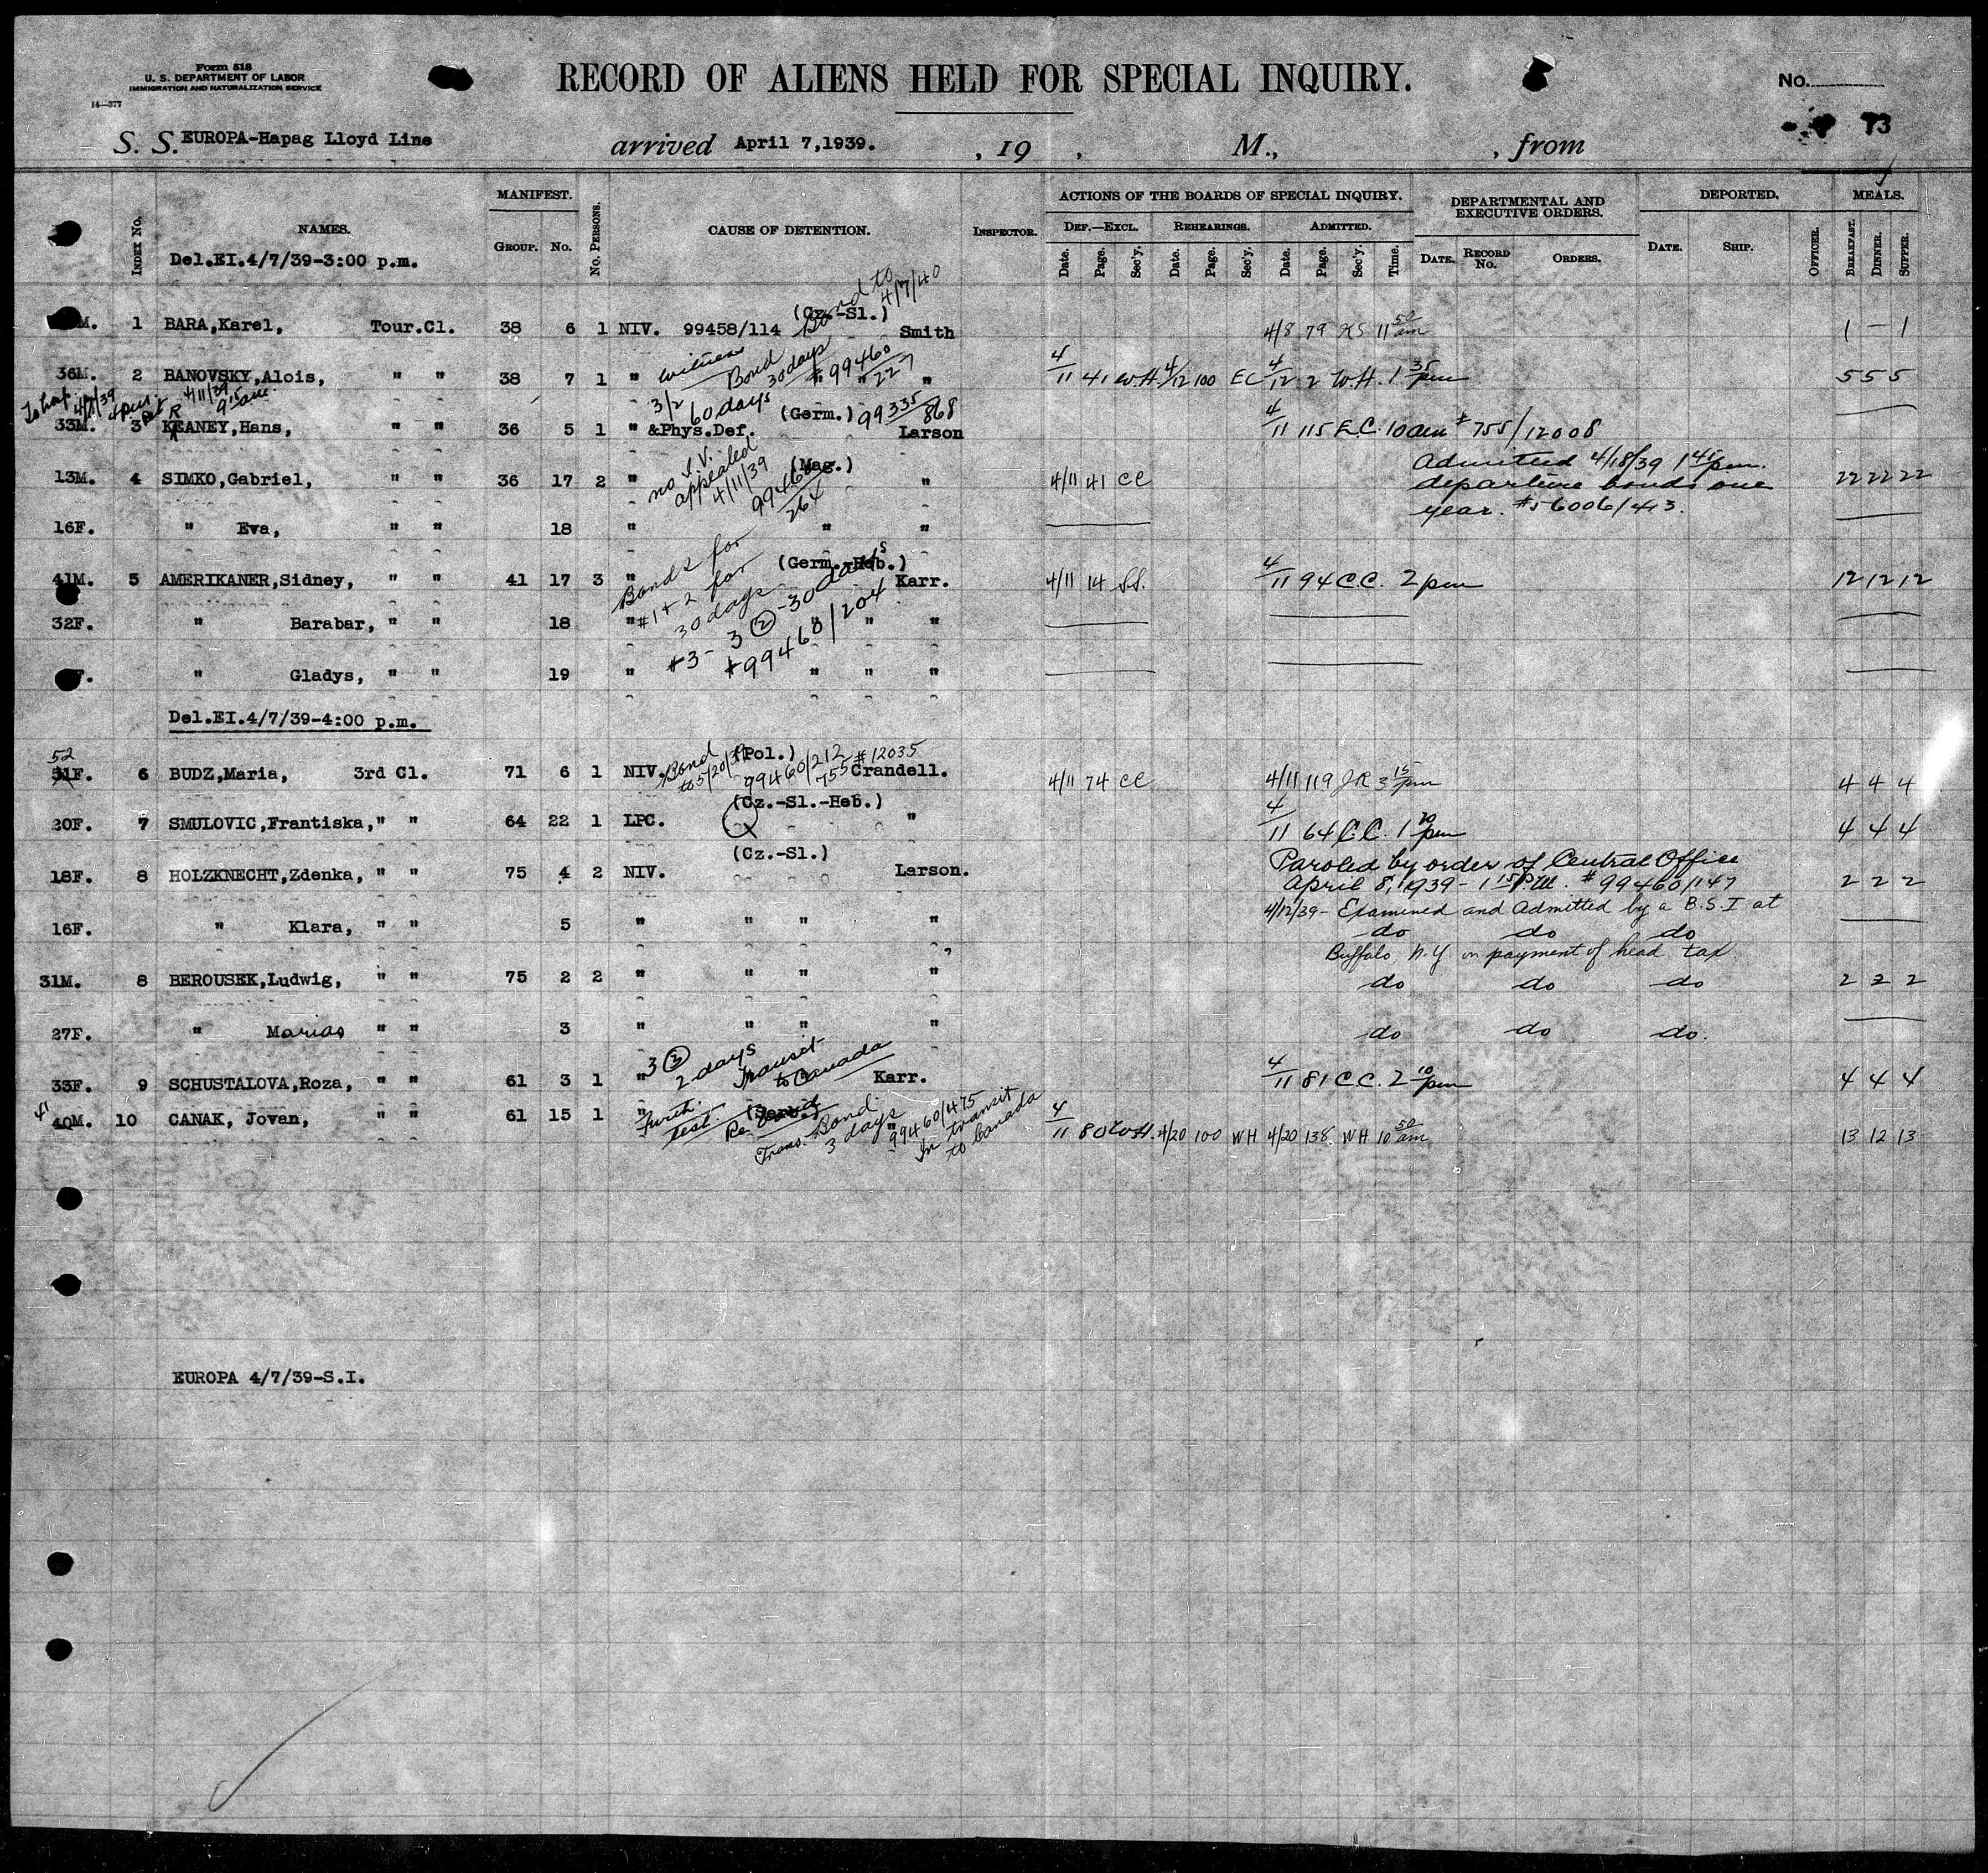 Form 518
U. S. DEPARTMENT OF LABOR
IMMIGRATION AND NATURALIZATION SERVICE
14—377
RECORD OF ALIENS HELD FOR SPECIAL INQUIRY.
No.
73
S. S. EUROPA-Hapag Lloyd Line arrived April 7,1939. , 19 , M., , from
INDEX No. NAMES. MANIFEST. GROUP. No. No. PERSONS. CAUSE OF DETENTION. INSPECTOR. ACTIONS OF THE BOARDS OF SPECIAL INQUIRY. DEF.—EXCL. Date. Page. Sec'y. REHEARINGS. Date. Page. Sec'y. ADMITTED. Date. Page. Sec'y. Time. DEPARTMENTAL AND EXECUTIVE ORDERS. DATE. RECORD No. ORDERS. DEPORTED. DATE. SHIP. OFFICER. MEALS. BREAKFAST. DINNER. SUPPER.
Del.EI.4/7/39-3:00 p.m.
Bond to 4/7/40
(Cz.-Sl.)
M. 1 BARA,Karel, Tour.Cl. 38 6 1 NIV. 99458/114 Smith 4/8 79 KS 11 50 am 1 – 1
witness Bond 30 days # 99460/227
36M. 2 BANOVSKY,Alois, " " 38 7 1 " " " 4/11 41 W.H. 4/12 100 EC 4/12 2 W.H. 1 35 pm 5 5 5
To hosp 4/8/39 4/11/39 9 15 am
3/2 60 days (Germ.) 99335/868
33M. 3 KEANEY,Hans, R " " 36 5 1 " &Phys.Def. Larson 4/11 115 E.C. 10 am # 755/12008
no I.V. appealed 4/11/39 (Mag.) 99460/264
13M. 4 SIMKO,Gabriel, " " 36 17 2 " " 4/11 41 CC Admitted 4/18/39 1 45 pm. departure bonds one year. #56006/413. 22 22 22
16F. " Eva, " " 18 " " "
Bonds for #1 + 2 for 30 days
(Germ.-Heb.)
41M. 5 AMERIKANER,Sidney, " " 41 17 3 " Karr. 4/11 14 S.S. 4/11 94 C.C. 2 pm 12 12 12
#3 - 3 (2) - 30 days
32F. " Barabar, " " 18 " " " "
#99460/204
F. " Gladys, " " 19 " " " "
Del.EI.4/7/39-4:00 p.m.
Bond to 5/20/39 (Pol.) 99460/212 755 #12035
52
51F. 6 BUDZ,Maria, 3rd Cl. 71 6 1 NIV. Crandell. 4/11 74 CC 4/11 119 JR 3 15 pm 4 4 4
(Cz.-Sl.-Heb.)
20F. 7 SMULOVIC,Frantiska, " " 64 22 1 LPC. " 4/11 64 C.C. 1 10 pm 4 4 4
(Cz.-Sl.)
18F. 8 HOLZKNECHT,Zdenka, " " 75 4 2 NIV. Larson. Paroled by order of Central Office April 8, 1939 - 1 15 P.M. #99460/147 2 2 2
4/12/39 - Examined and Admitted by a B.S.I at
16F. " Klara, " " 5 " " " " do do do
Buffalo, N.Y on payment of head tax
31M. 8 BEROUSEK,Ludwig, " " 75 2 2 " " " " do do do 2 2 2
27F. " Marias " " 3 " " " " do do do.
3 (3) 2 days transit to Canada
33F. 9 SCHUSTALOVA,Roza, " " 61 3 1 " Karr. 4/11 81 C.C. 2 10 pm 4 4 4
41
40M. 10 CANAK, Jovan, " " 61 15 1 " (Serb.) 4/11 80 W.H. 4/20 100 WH 4/20 138 WH 10 50 am 13 12 13
Furth. test. Trans. Bond 3 days 99460/475 In transit to Canada
EUROPA 4/7/39-S.I.